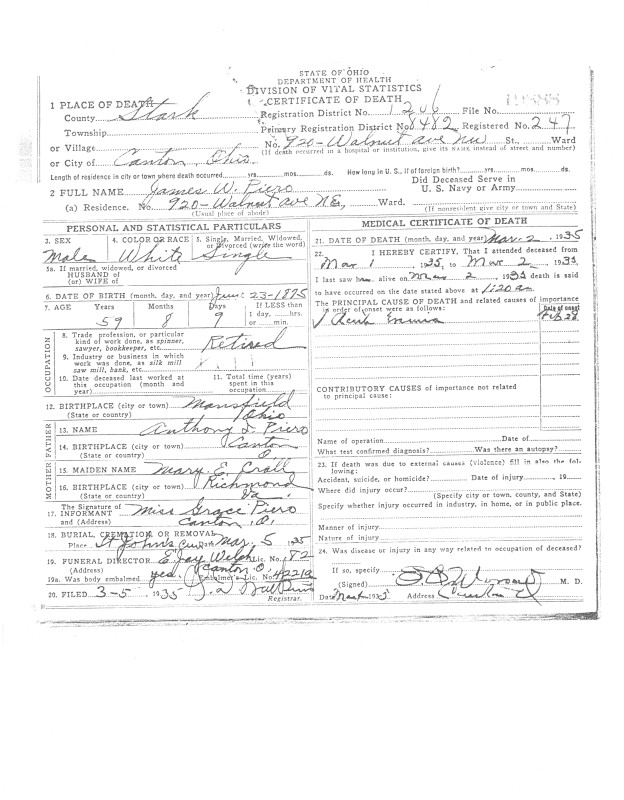 STATE OF OHIO
DEPARTMENT OF HEALTH
DIVISION OF VITAL STATISTICS
CERTIFICATE OF DEATH
1 PLACE OF DEATH
County Stark
Registration District No. 1206 File No.
Township
Primary Registration District No. 8482 Registered No. 247
or Village
No. 920-Walnut Ave NW St., Ward
(If death occurred in a hospital or institution, give its NAME instead of street and number)
or City of Canton, Ohio
Length of residence in city or town where death occurred yrs. mos. ds. How long in U. S., if of foreign birth? yrs. mos. ds.
2 FULL NAME James W. Piero
Did Deceased Serve in
U. S. Navy or Army
(a) Residence. No. 920-Walnut Ave NE, Ward.
(Usual place of abode) (If nonresident give city or town and State)
PERSONAL AND STATISTICAL PARTICULARS
3. SEX Male
4. COLOR OR RACE White
5. Single, Married, Widowed, or Divorced (write the word) Single
5a. If married, widowed, or divorced
HUSBAND of
(or) WIFE of
6. DATE OF BIRTH (month, day, and year) 23-1875
7. AGE Years Months Days If LESS than
1 day, hrs.
or min.
59 8 9
OCCUPATION
8. Trade, profession, or particular
kind of work done, as spinner,
sawyer, bookkeeper, etc. Retired
9. Industry or business in which
work was done, as silk mill
saw mill, bank, etc.
10. Date deceased last worked at
this occupation (month and
year)
11. Total time (years)
spent in this
occupation
12. BIRTHPLACE (city or town) Mansfield
(State or country) Ohio
FATHER
13. NAME Anthony L. Piero
14. BIRTHPLACE (city or town) Canton
(State or country) O
MOTHER
15. MAIDEN NAME Mary E. Crall
16. BIRTHPLACE (city or town) Richmond
(State or country) Va.
17. The Signature of
INFORMANT Miss Grace Piero
and (Address) Canton, O.
18. BURIAL, CREMATION OR REMOVAL
Place St Johns Cem Date Mar. 5, 1935
19. FUNERAL DIRECTOR E Jay Welch Lic. No. 82
(Address) Canton O.
19a. Was body embalmed yes. Embalmer's Lic. No. 4221a
20. FILED 3-5, 1935
Registrar.
MEDICAL CERTIFICATE OF DEATH
21. DATE OF DEATH (month, day, and year) Mar. 2, 1935
22. I HEREBY CERTIFY, That I attended deceased from
Mar 1, 1935, to Mar 2, 1935.
I last saw h alive on Mar 2, 1935 death is said
to have occurred on the date stated above at 1:20 am
The PRINCIPAL CAUSE OF DEATH and related causes of importance
in order of onset were as follows:
Date of onset
Feb 28
CONTRIBUTORY CAUSES of importance not related
to principal cause:
Name of operation Date of
What test confirmed diagnosis? Was there an autopsy?
23. If death was due to external causes (violence) fill in also the following:
Accident, suicide, or homicide? Date of injury , 19
Where did injury occur?
(Specify city or town, county, and State)
Specify whether injury occurred in industry, in home, or in public place.
Manner of injury
Nature of injury
24. Was disease or injury in any way related to occupation of deceased?
If so, specify
(Signed) M. D.
Date 1935 Address Canton O